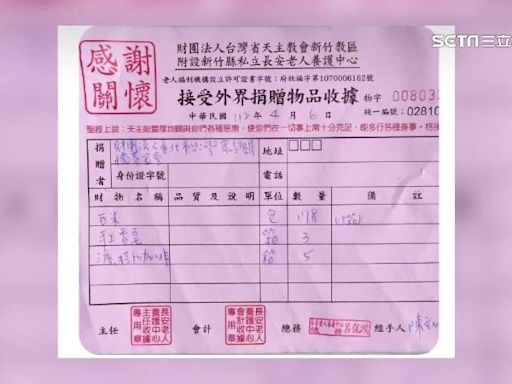 SETN三立
感謝
關懷
財團法人台灣省天主教會新竹教區
附設新竹縣私立長安老人養護中心
老人福利機構設立許可證書字號：府社福字第1070006162號
接受外界捐贈物品收據
物字 00803
中華民國 112年4月6日
統一編號：02810
聖經上說：天主能豐厚地賜與你們各種恩惠，使你們在一切事上常十分充足，能多行各種善事。
捐贈者
財團法人台北市
地址
身份證字號
電話
財物名稱 品質及說明 單位 數量 備註
白米 包 118
箱 3
箱 5
主任 長安老人養護中心主任專用章 會計 長安老人養護中心會計收據專用章 總務 經手人 陳